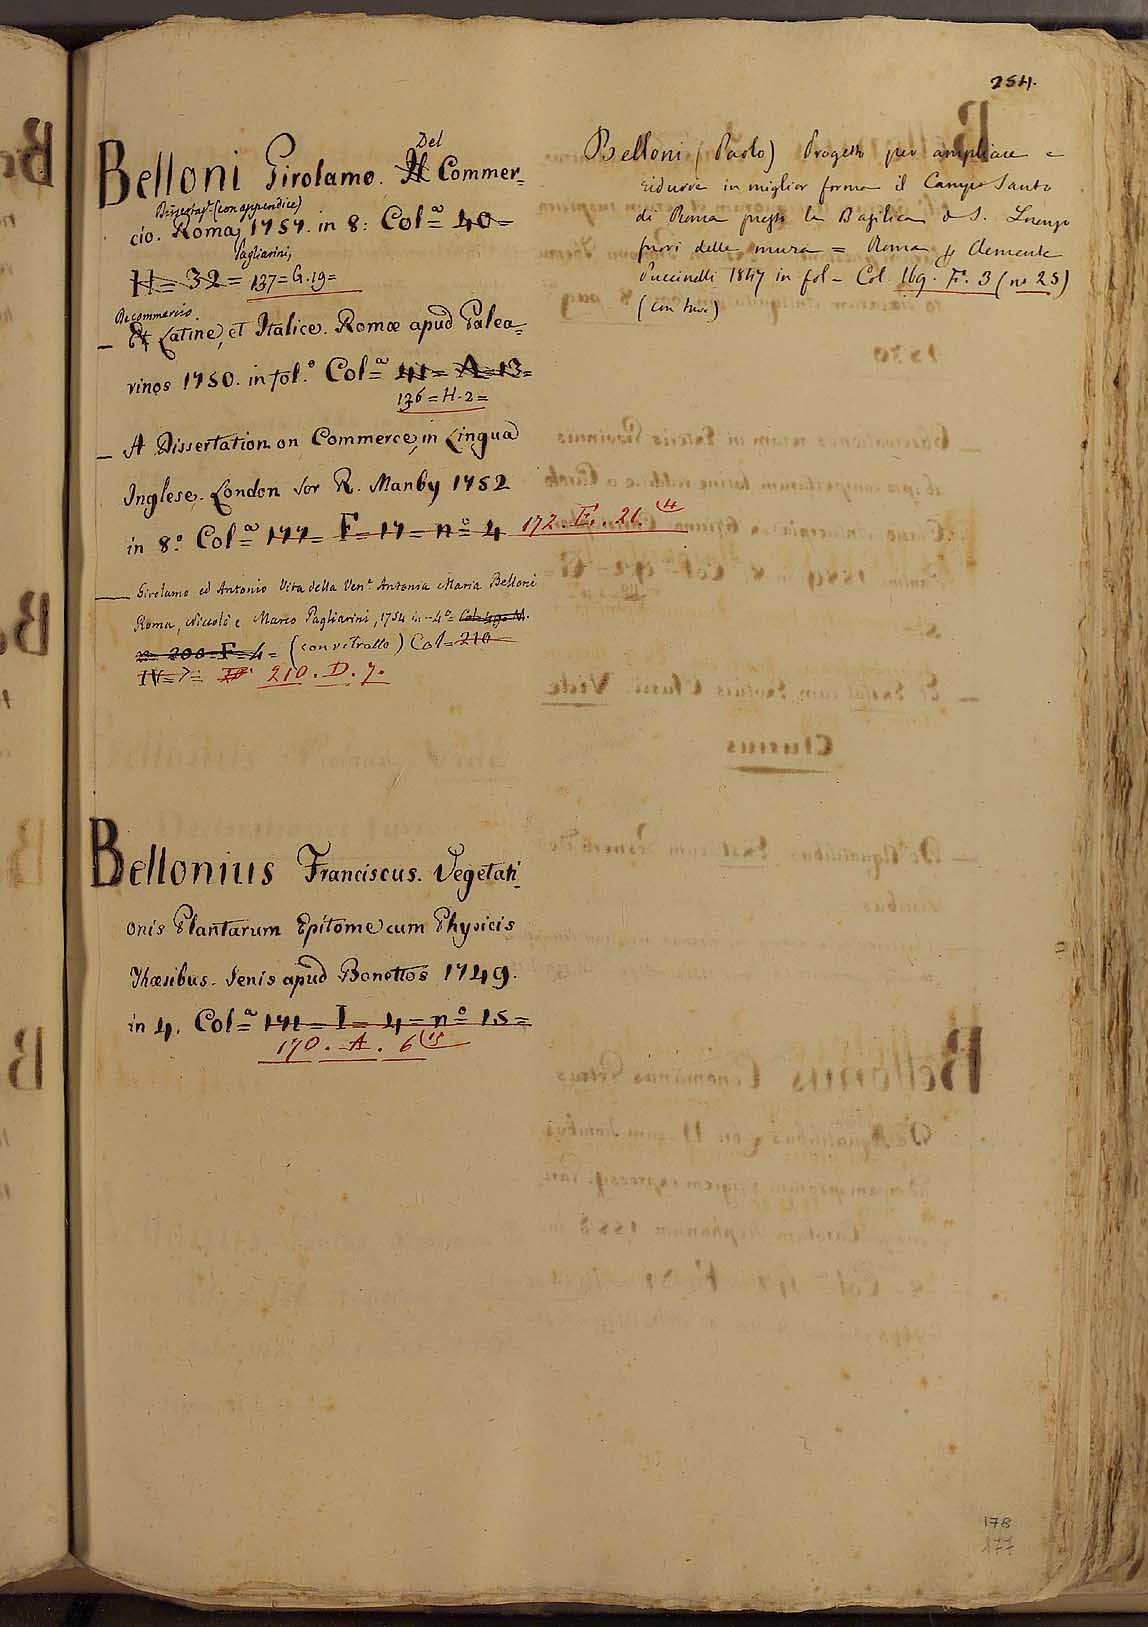 254.
Belloni Girolamo. Il Del Commer=
Dissertaz.e (con appendice)
cio. Roma, 1757. in 8: Col=a 40=
Pagliarini,
H= 32= 137=G.19=
De commercio.
_ Et Latine, et Italice. Romæ apud Palea=
rinos 1750. in fol.o Col=a 41= A=13=
136=H-2=
_ A Dissertation on Commerce, in Lingua
Inglese. London for R. Manby 1752
in 8.o Col=a 177= F=17=n.o 4 172. E. 21. 4
___ Girolamo ed Antonio Vita della Ven.e Antonia Maria Belloni
Roma, Niccolò e Marco Pagliarini, 1754 in-4.o=
n= 200=F=4= (con ritratto) Col=210
IV=7= 210. D. 7.
Bellonius Franciscus. Vegetati=
onis Plantarum Epitome cum Physicis
Thæsibus. Senis apud Bonettos 1749.
in 4. Col=a 171= I= 4=n.o 15=
170. A. 6 15
254.
Belloni (Paolo) Progetto per ampliare e
ridurre in miglior forma il Campo Santo
di Roma presso la Basilica di S. Lorenzo
fuori delle mura = Roma p Clemente
Puccinelli 1847 in fol- Col. 169. F. 3 (no 25)
(con tav.)
178
177